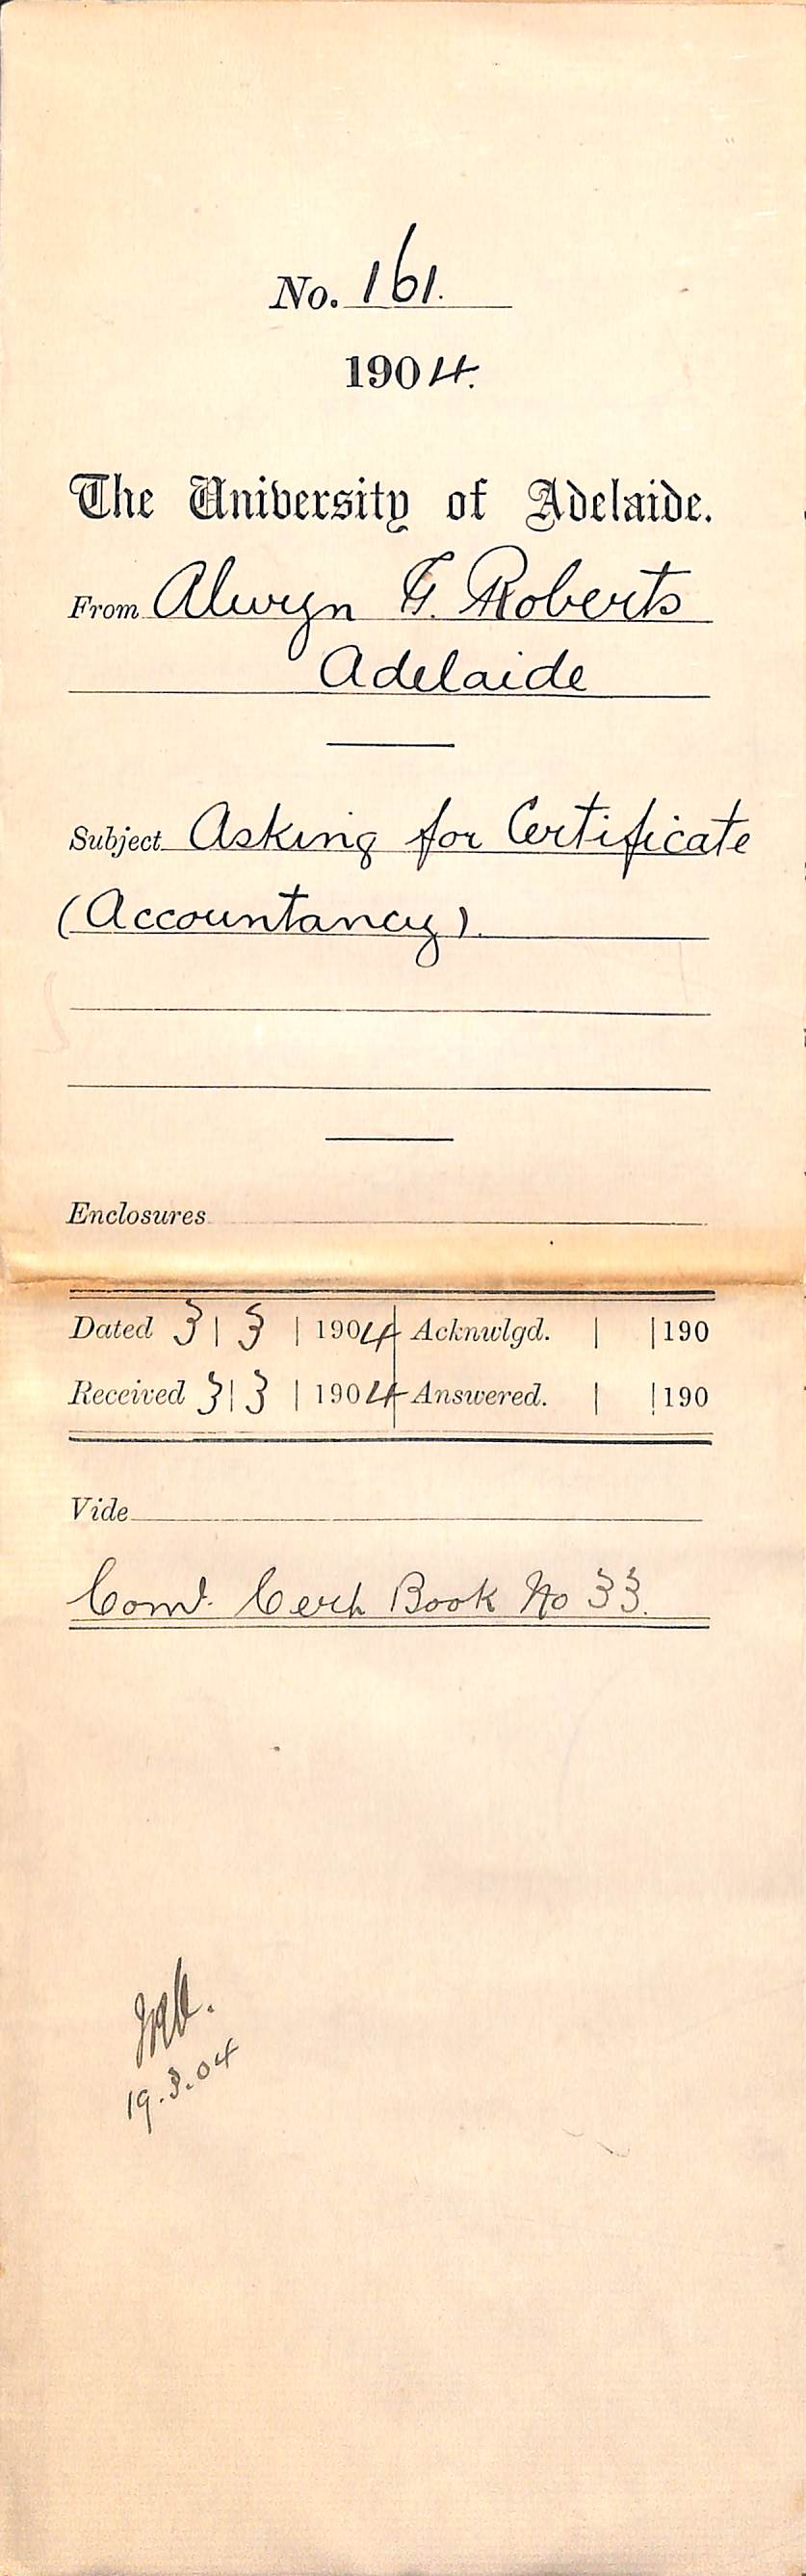 No. 161.
1904.
The University of Adelaide.
From Alwyn G. Roberts
Adelaide
Subject Asking for Certificate
(Accountancy).
Enclosures
Dated 3 | 3 | 1904 Acknwlgd. | | 190
Received 3 | 3 | 1904 Answered. | | 190
Vide
Coml. Cert Book No 33.
19.3.04